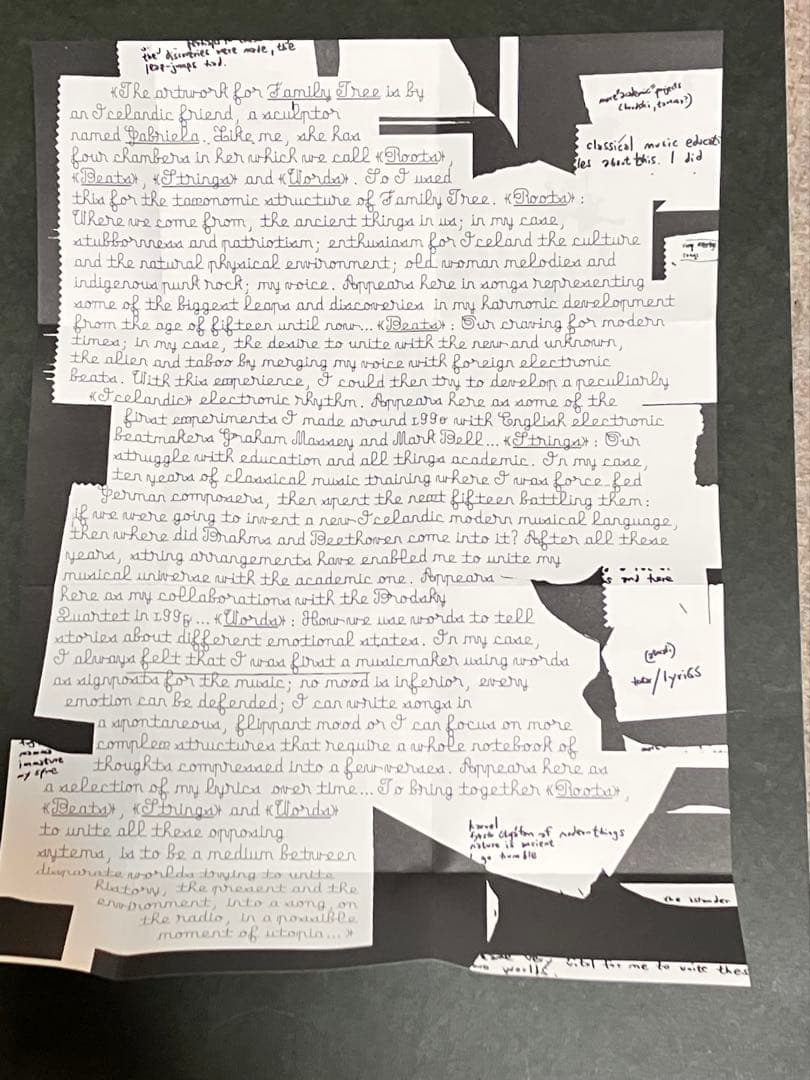 the discoveries were made, the
leap-jumps had.
«The artwork for Family Tree is by
an Icelandic friend, a sculptor
named Gabriela. Like me, she has
four chambers in her which we call «Roots»,
«Beats», «Strings» and «Words». So I used
this for the taxonomic structure of Family Tree. «Roots»:
Where we come from, the ancient things in us; in my case,
stubbornness and patriotism; enthusiasm for Iceland the culture
and the natural physical environment; old woman melodies and
indigenous punk rock; my voice. Appears here in songs representing
some of the biggest leaps and discoveries in my harmonic development
from the age of fifteen until now... «Beats»: Our craving for modern
times; in my case, the desire to unite with the new and unknown,
the alien and taboo by merging my voice with foreign electronic
beats. With this experience, I could then try to develop a peculiarly
«Icelandic» electronic rhythm. Appears here as some of the
first experiments I made around 1990 with English electronic
beatmakers Graham Massey and Mark Bell... «Strings»: Our
struggle with education and all things academic. In my case,
ten years of classical music training where I was force-fed
German composers, then spent the next fifteen battling them:
if we were going to invent a new Icelandic modern musical language,
then where did Brahms and Beethoven come into it? After all these
years, string arrangements have enabled me to unite my
musical universe with the academic one. Appears
here as my collaborations with the Brodsky
Quartet in 1995... «Words»: How we use words to tell
stories about different emotional states. In my case,
I always felt that I was first a musicmaker using words
as signposts for the music; no mood is inferior, every
emotion can be defended; I can write songs in
a spontaneous, flippant mood or I can focus on more
complex structures that require a whole notebook of
thoughts compressed into a few verses. Appears here as
a selection of my lyrics over time... To bring together «Roots»,
«Beats», «Strings» and «Words»
to unite all these opposing
sytems, is to be a medium between
disparate worlds trying to unite
history, the present and the
environment, into a song, on
the radio, in a possible
moment of utopia...»
more "academic" projects
classical music educati
les about this. I did
s and here
/lyrics
immature
my spine
of modern things
nature is ancient
I go humble
the islander
for me to unite thes
wo worlds